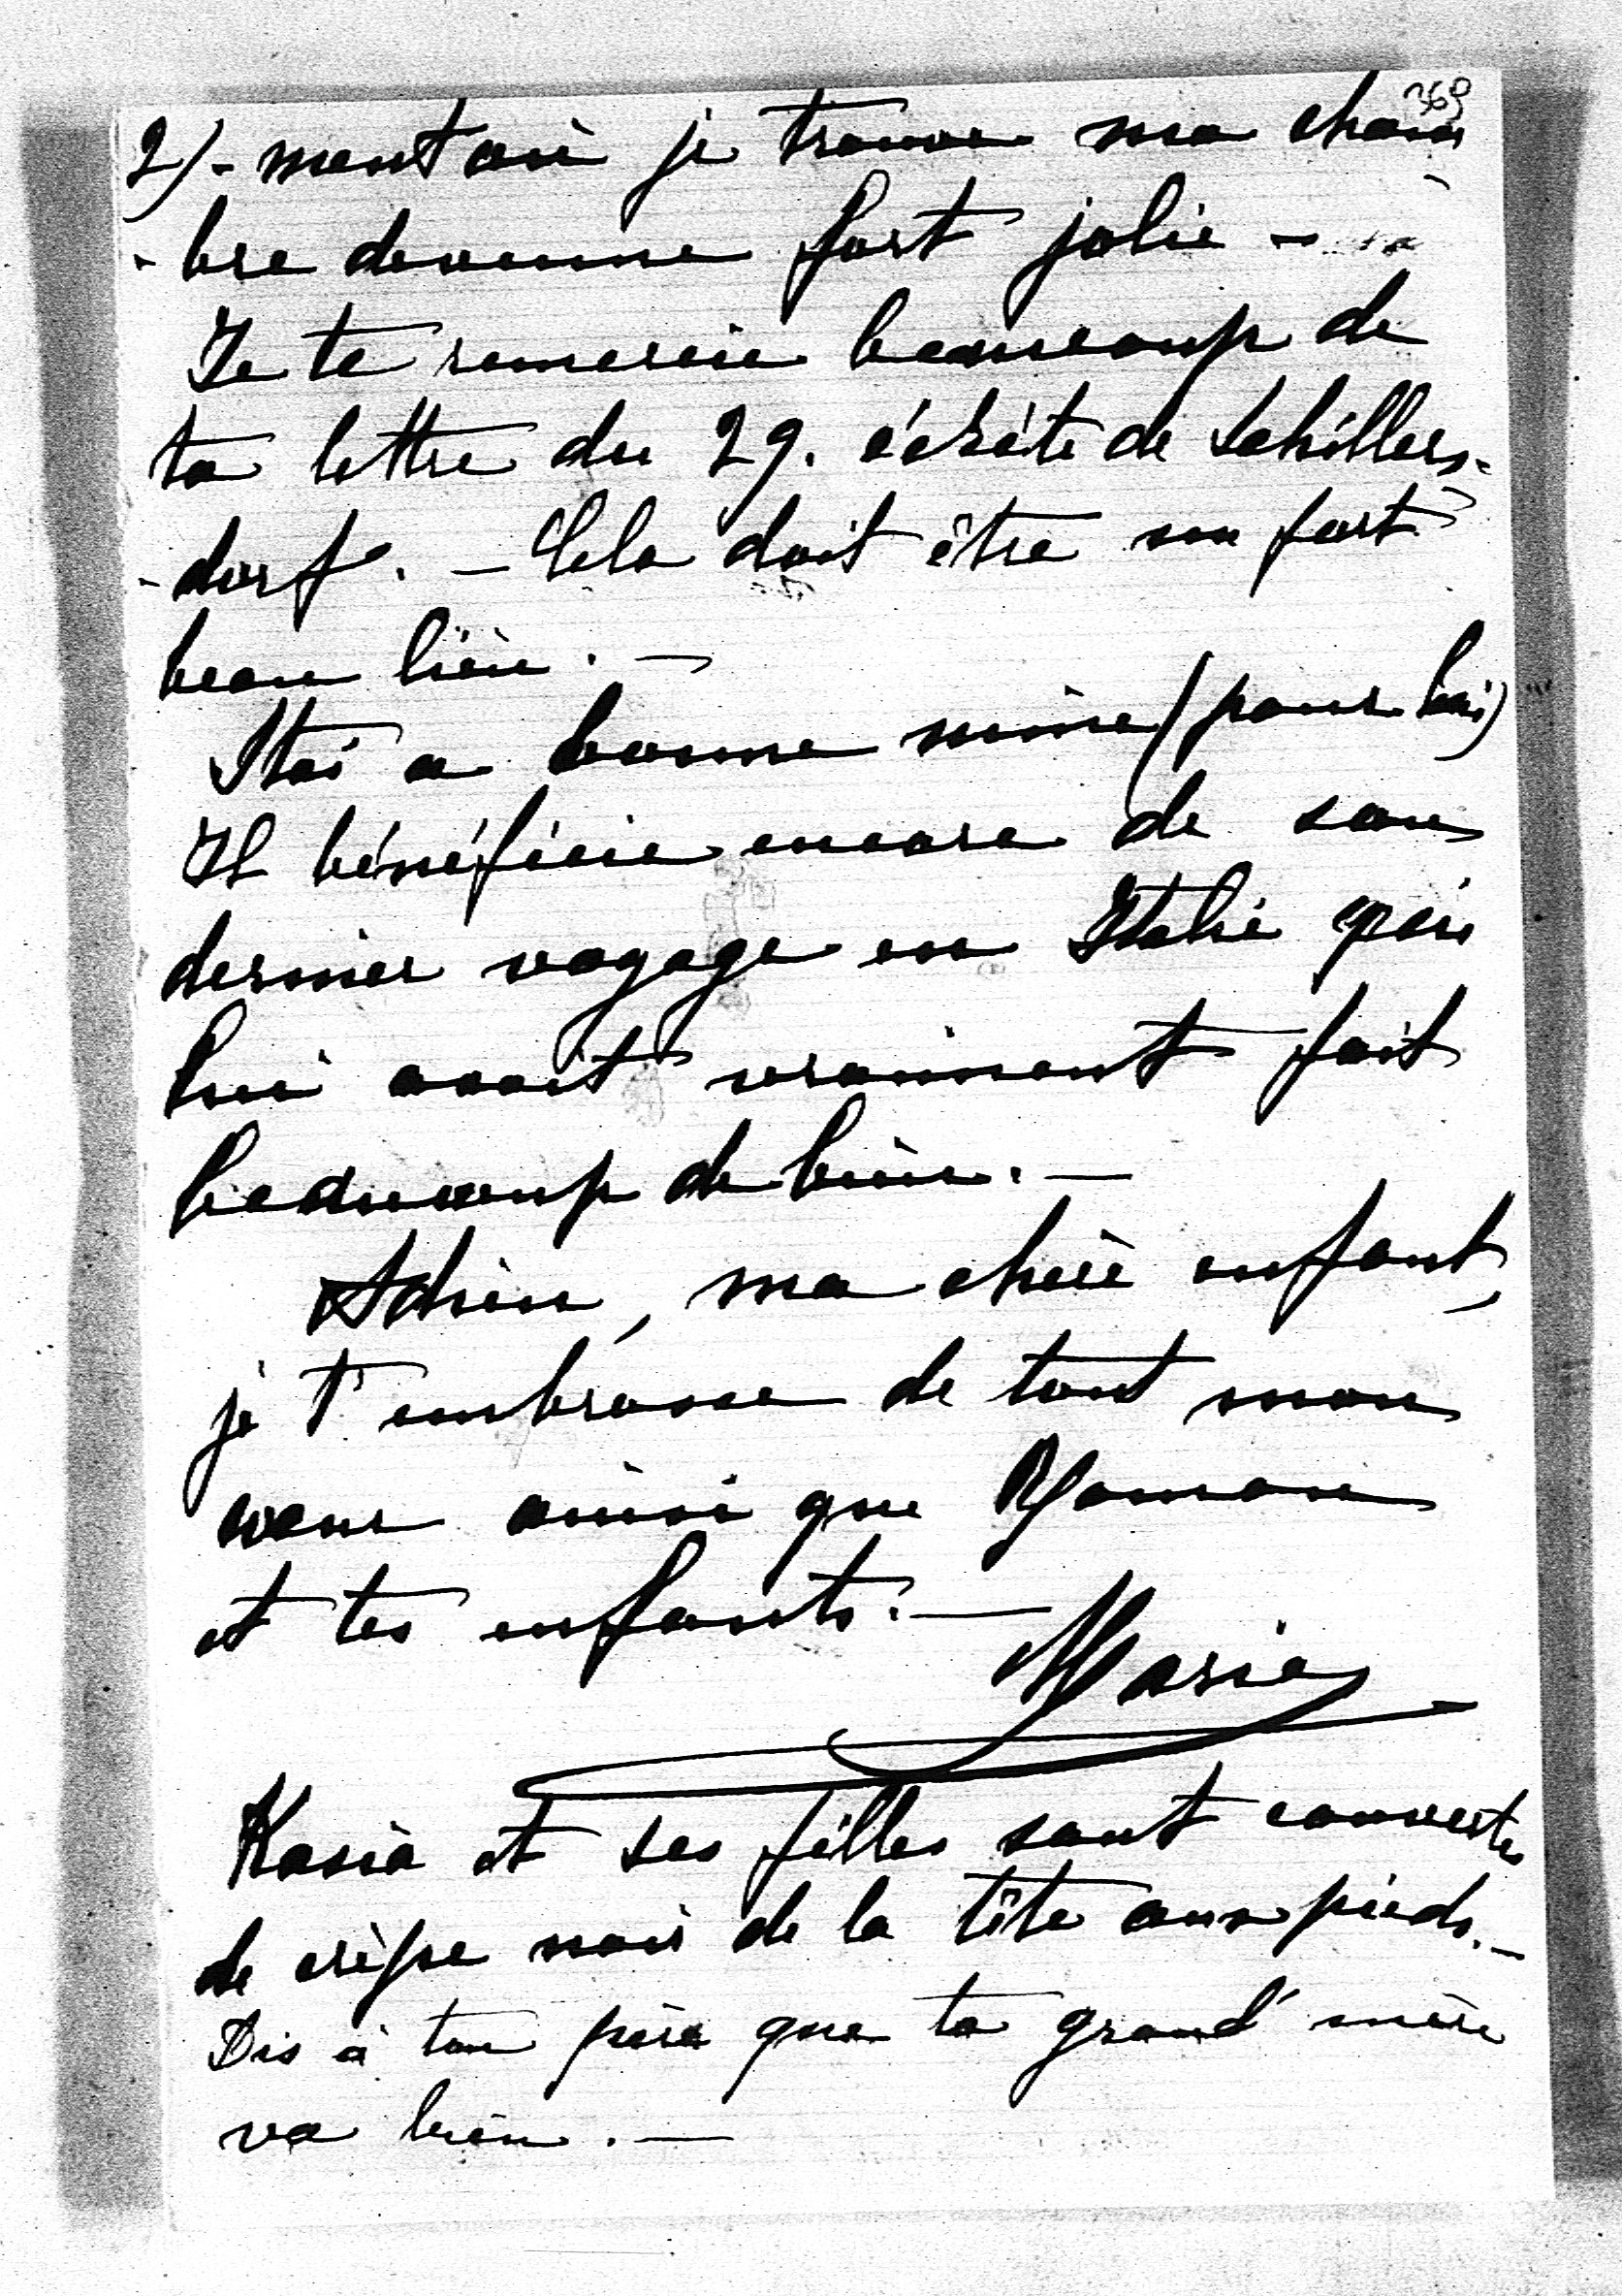 369
2/- ment où je trouve ma cham
- bre devenue fort jolie -
Je te remercie beaucoup de
ta lettre du 29. écrite de Schillers-
- dorf. - Cela doit être un fort
beau lieu. -
Stas a bonne mine (pour lui)
Il bénéficie encore de son
dernier voyage en Italie qui
lui avait vraiment fait
beaucoup de bien. -
Adieu, ma chère enfant,
je t'embrasse de tout mon
coeur ainsi que Roman
et tes enfants. -
Marie
Kasia et ses filles sont couvertes
de crêpe noir de la tête aux pieds. -
Dis à ton père que ta grand'mère
va bien. -